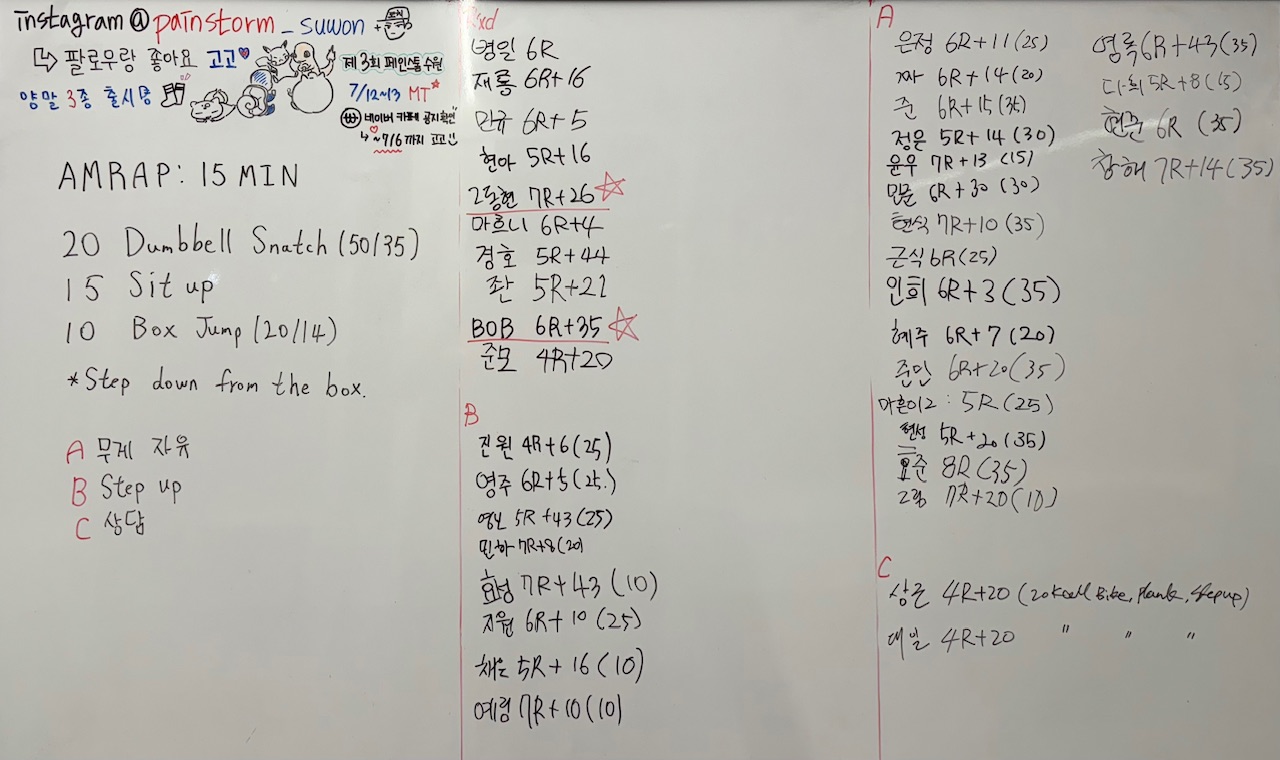 instagram @ painstorm _ suwon
↳ 팔로우랑 좋아요 고고♥
양말 3종 출시중
제 3회 페인스톰 수원
7/12~13 MT
네이버 카페 공지확인
↳ ~7/6 까지 고고!!
AMRAP: 15 MIN
20 Dumbbell Snatch (50/35)
15 Sit up
10 Box Jump (20/14)
*Step down from the box.
A 무게 자유
B Step up
C 상담
Rxd
명일 6R
재룡 6R+16
민규 6R+5
현아 5R+16
2동현 7R+26 ☆
마르니 6R+4
경호 5R+44
좌 5R+21
BOB 6R+35 ☆
준모 4R+20
B
진원 4R+6 (25)
영주 6R+5 (25.)
5R+43 (25)
민하 7R+8 (20)
효성 7R+43 (10)
지원 6R+10 (25)
채은 5R+16 (10)
예림 7R+10 (10)
A
은정 6R+11 (25)
짜 6R+14 (20)
준 6R+15 (35)
정은 5R+14 (30)
윤우 7R+13 (15)
민준 6R+30 (30)
현식 7R+10 (35)
근식 6R (25)
인희 6R+3 (35)
혜주 6R+7 (20)
준민 6R+20 (35)
마흔이2 : 5R (25)
현성 5R+20 (35)
효준 8R (35)
그림 7R+20 (10)
영록 6R+43 (35)
다희 5R+8 (15)
현준 6R (35)
창해 7R+14 (35)
C
상은 4R+20 (20kcall Bike, Plank, Step up)
대일 4R+20 " " "